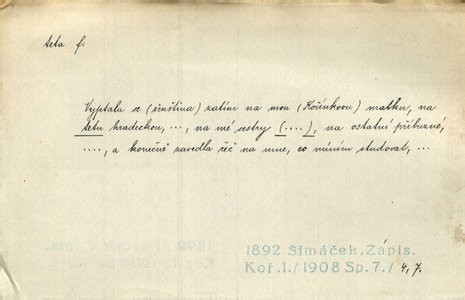 teta f.
Vyptala se (ženština) zatím na mou (Kořínkovu) matku, na
tetu hradeckou, ..., na mé sestry (....), na ostatní příbuzné,
...., a konečně zavedla řeč na mne, co míním studovat, ...
1892 Šimáček. Zápis.
Koř. I. / 1908 Sp. 7. / 4, 7.